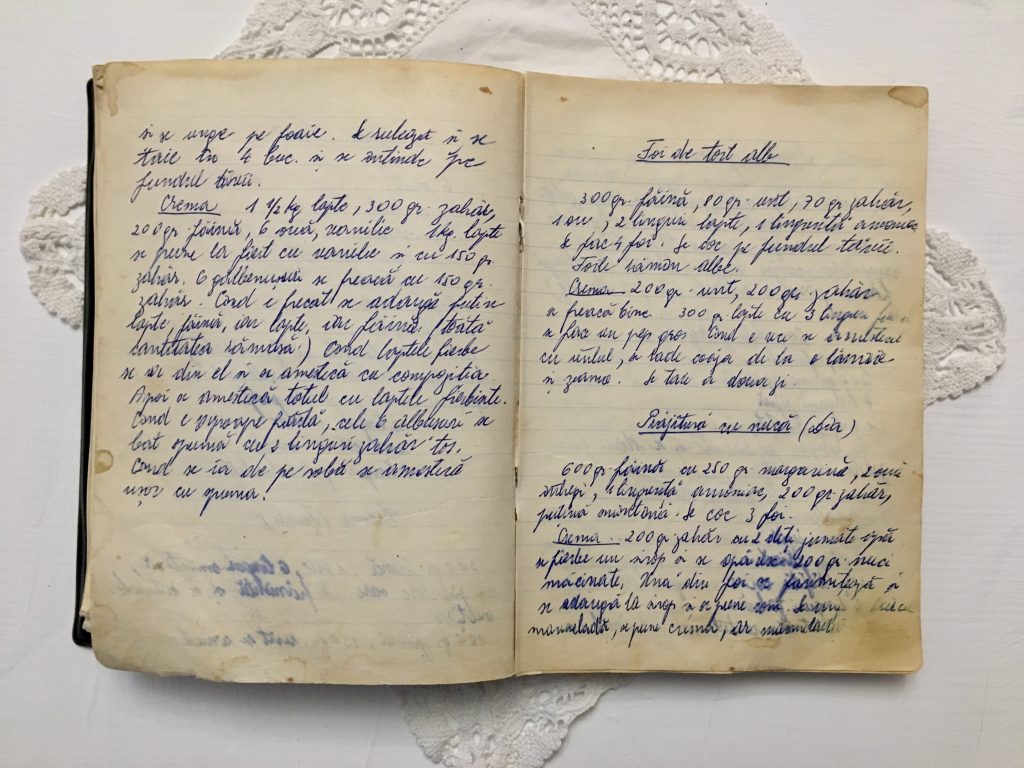 și se unge pe foaie. Se rulează și se
taie în 4 buc. și se întinde pe
fundul tăvii.
Crema 1 1/2 kg lapte, 300 gr. zahăr,
200 gr. făină, 6 ouă, vanilie 1 kg. lapte
se pune la fiert cu vanilie și cu 150 gr.
zahăr. 6 gălbenușuri se freacă cu 150 gr.
zahăr. Cînd e frecat se adaugă puțin
lapte, făină, iar lapte, iar făină (toată
cantitatea rămasă.) Cînd laptele fierbe
se ia din el și se amestică cu compoziția
Apoi se amestică totul cu laptele fierbinte.
Cînd e aproape fiartă, cele 6 albușuri se
bat spumă cu 2 linguri zahăr tos.
Cînd se ia de pe sobă se amestică
ușor cu spuma.
Foi de tort albe
300 gr. făină, 80 gr. unt, 70 gr. zahăr,
1 ou, 2 linguri lapte, 1 linguriță amoniac
Se fac 4 foi. Se coc pe fundul tăvii.
Foile rămîn albe.
Crema 200 gr. unt, 200 gr. zahăr
se freacă bine. 300 gr. lapte cu 3 linguri
se face un pap gros. Cînd e rece se amestică
cu untul, se rade coaja de la o lămîie
și zeama. Se taie a doua zi.
Prăjitură cu nucă (Lia)
600 gr. făină cu 250 gr. margarină, 2 ouă
întregi, 1 linguriță amoniac, 200 gr. zahăr,
puțină smîntînă. Se coc 3 foi.
Crema. 200 gr. zahăr cu 2 apă
se fierbe un sirop și se opăresc 200 gr. nuci
măcinate. Una din foi se și
se adaugă la sirop și se pune
marmeladă, se pune crema, iar